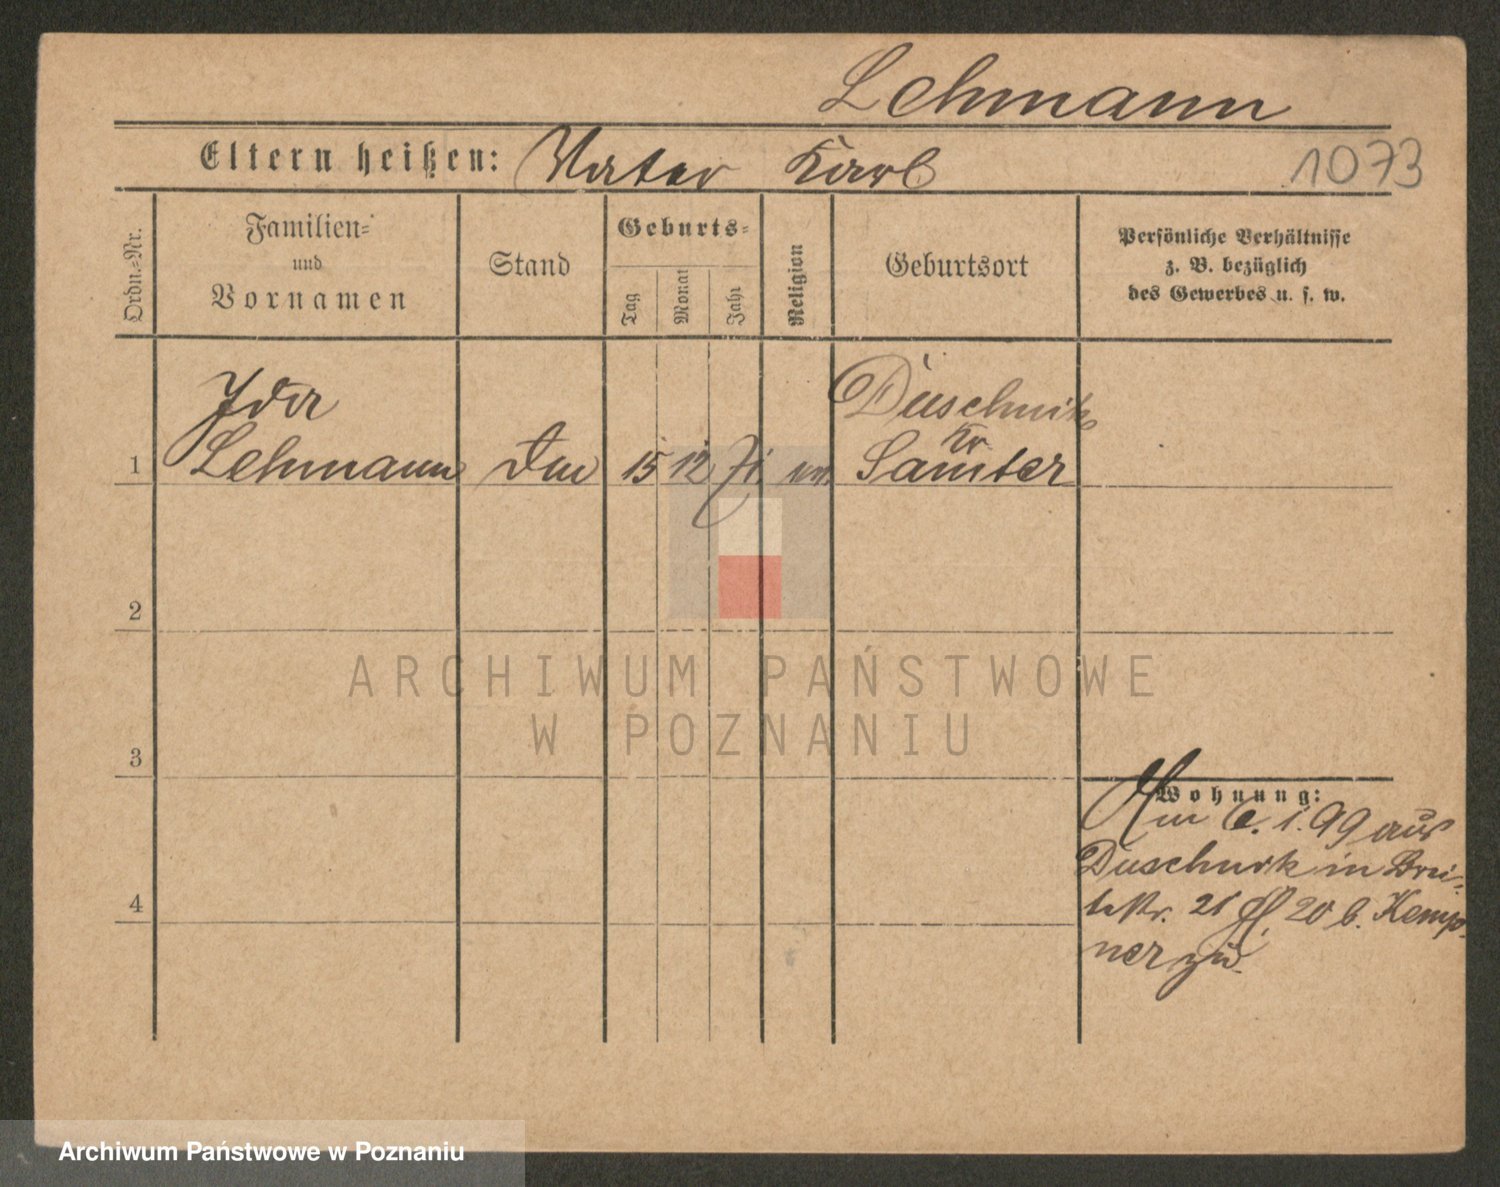 Lehmann
Eltern heißen: Vater Karl
1073
Ordn.-Nr.
Familien-
und
Vornamen
Stand
Geburts-
Tag
Monat
Jahr
Religion
Geburtsort
Persönliche Verhältnisse
z. B. bezüglich
des Gewerbes u. s. w.
1
Ida
Lehmann
15
12
71
Duschnik
Kr
Samter
2
3
4
ARCHIWUM PAŃSTWOWE
W POZNANIU
Wohnung:
Am 6. 1. 99 aus
Duschnik in Brei-
testr. 21 20 b. Kemp-
ner zu.
Archiwum Państwowe w Poznaniu